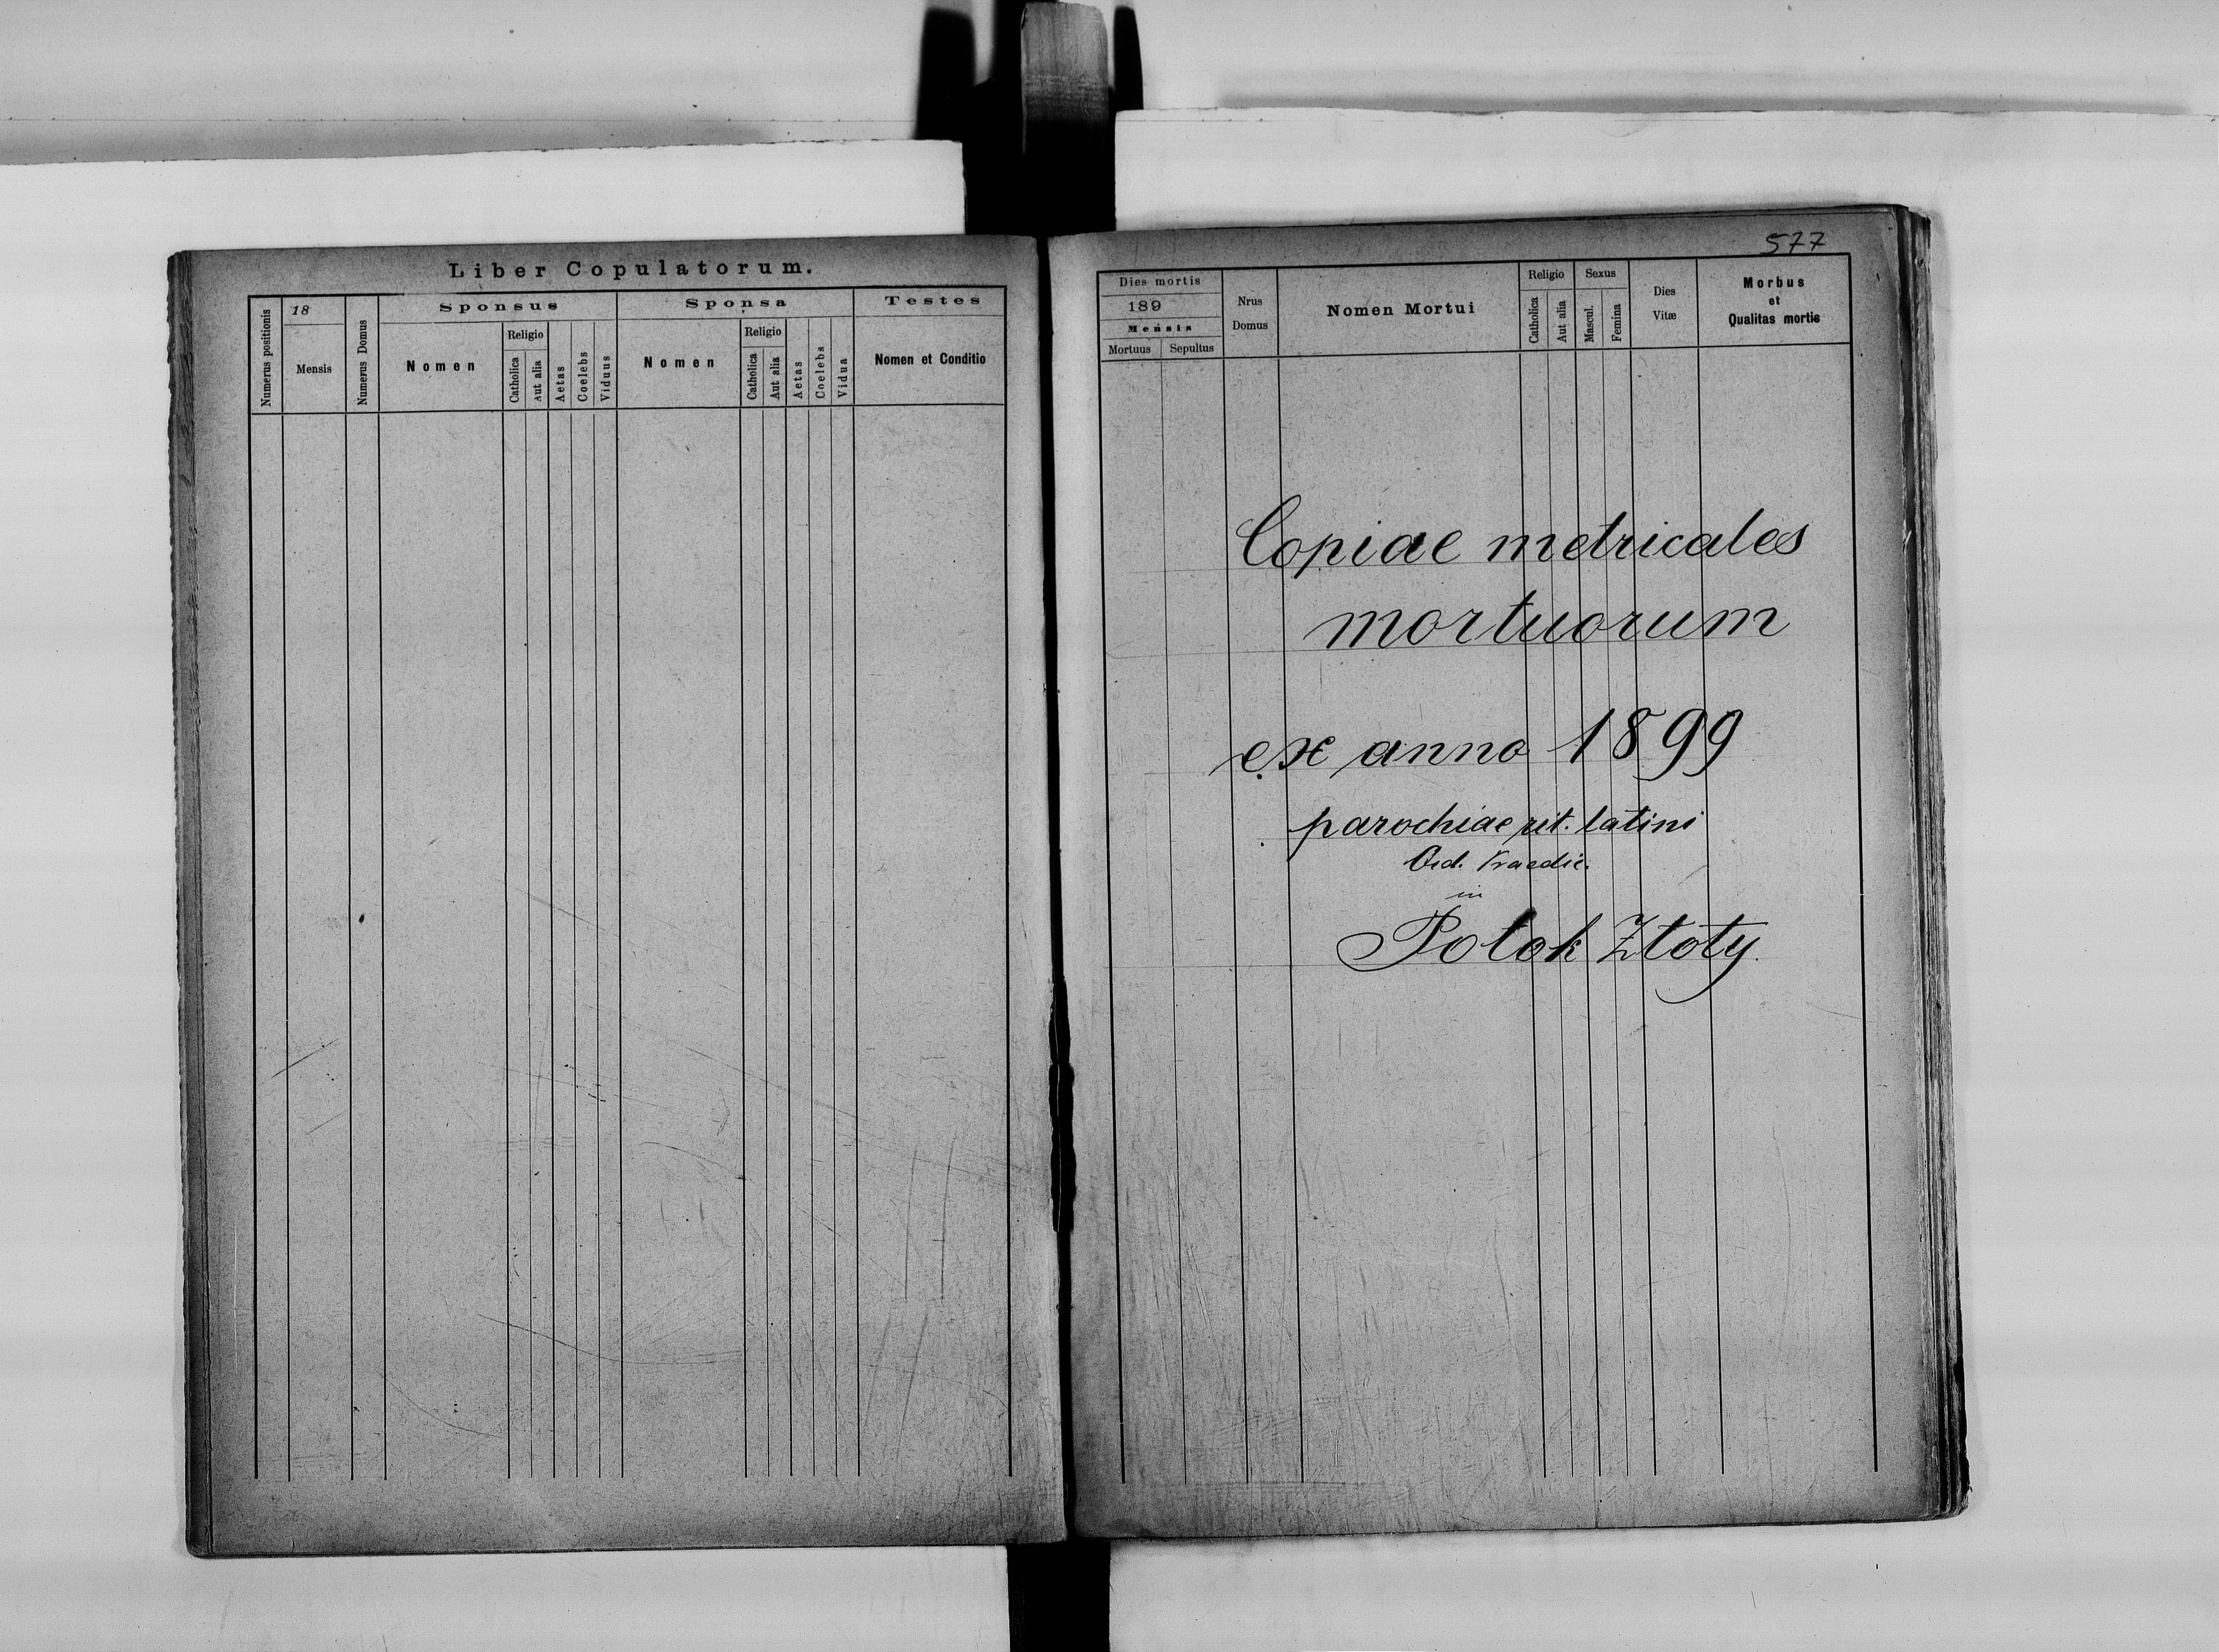 Liber Copulatorum.
Numerus positionis
18
Mensis
Numerus Domus
Sponsus
Nomen
Religio
Catholica
Aut alia
Aetas
Coelebs
Viduus
Sponsa
Nomen
Religio
Catholica
Aut alia
Aetas
Coelebs
Vidua
Testes
Nomen et Conditio
577
Dies mortis
189
Mensis
Mortuus
Sepultus
Nrus
Domus
Nomen Mortui
Religio
Catholica
Aut alia
Sexus
Mascul.
Femina
Dies
Vitæ
Morbus
et
Qualitas mortis
Copiae metricales
mortuorum
ex anno 1899
parochiae rit. latini
Ord. Praedic.
in
Potok Złoty.